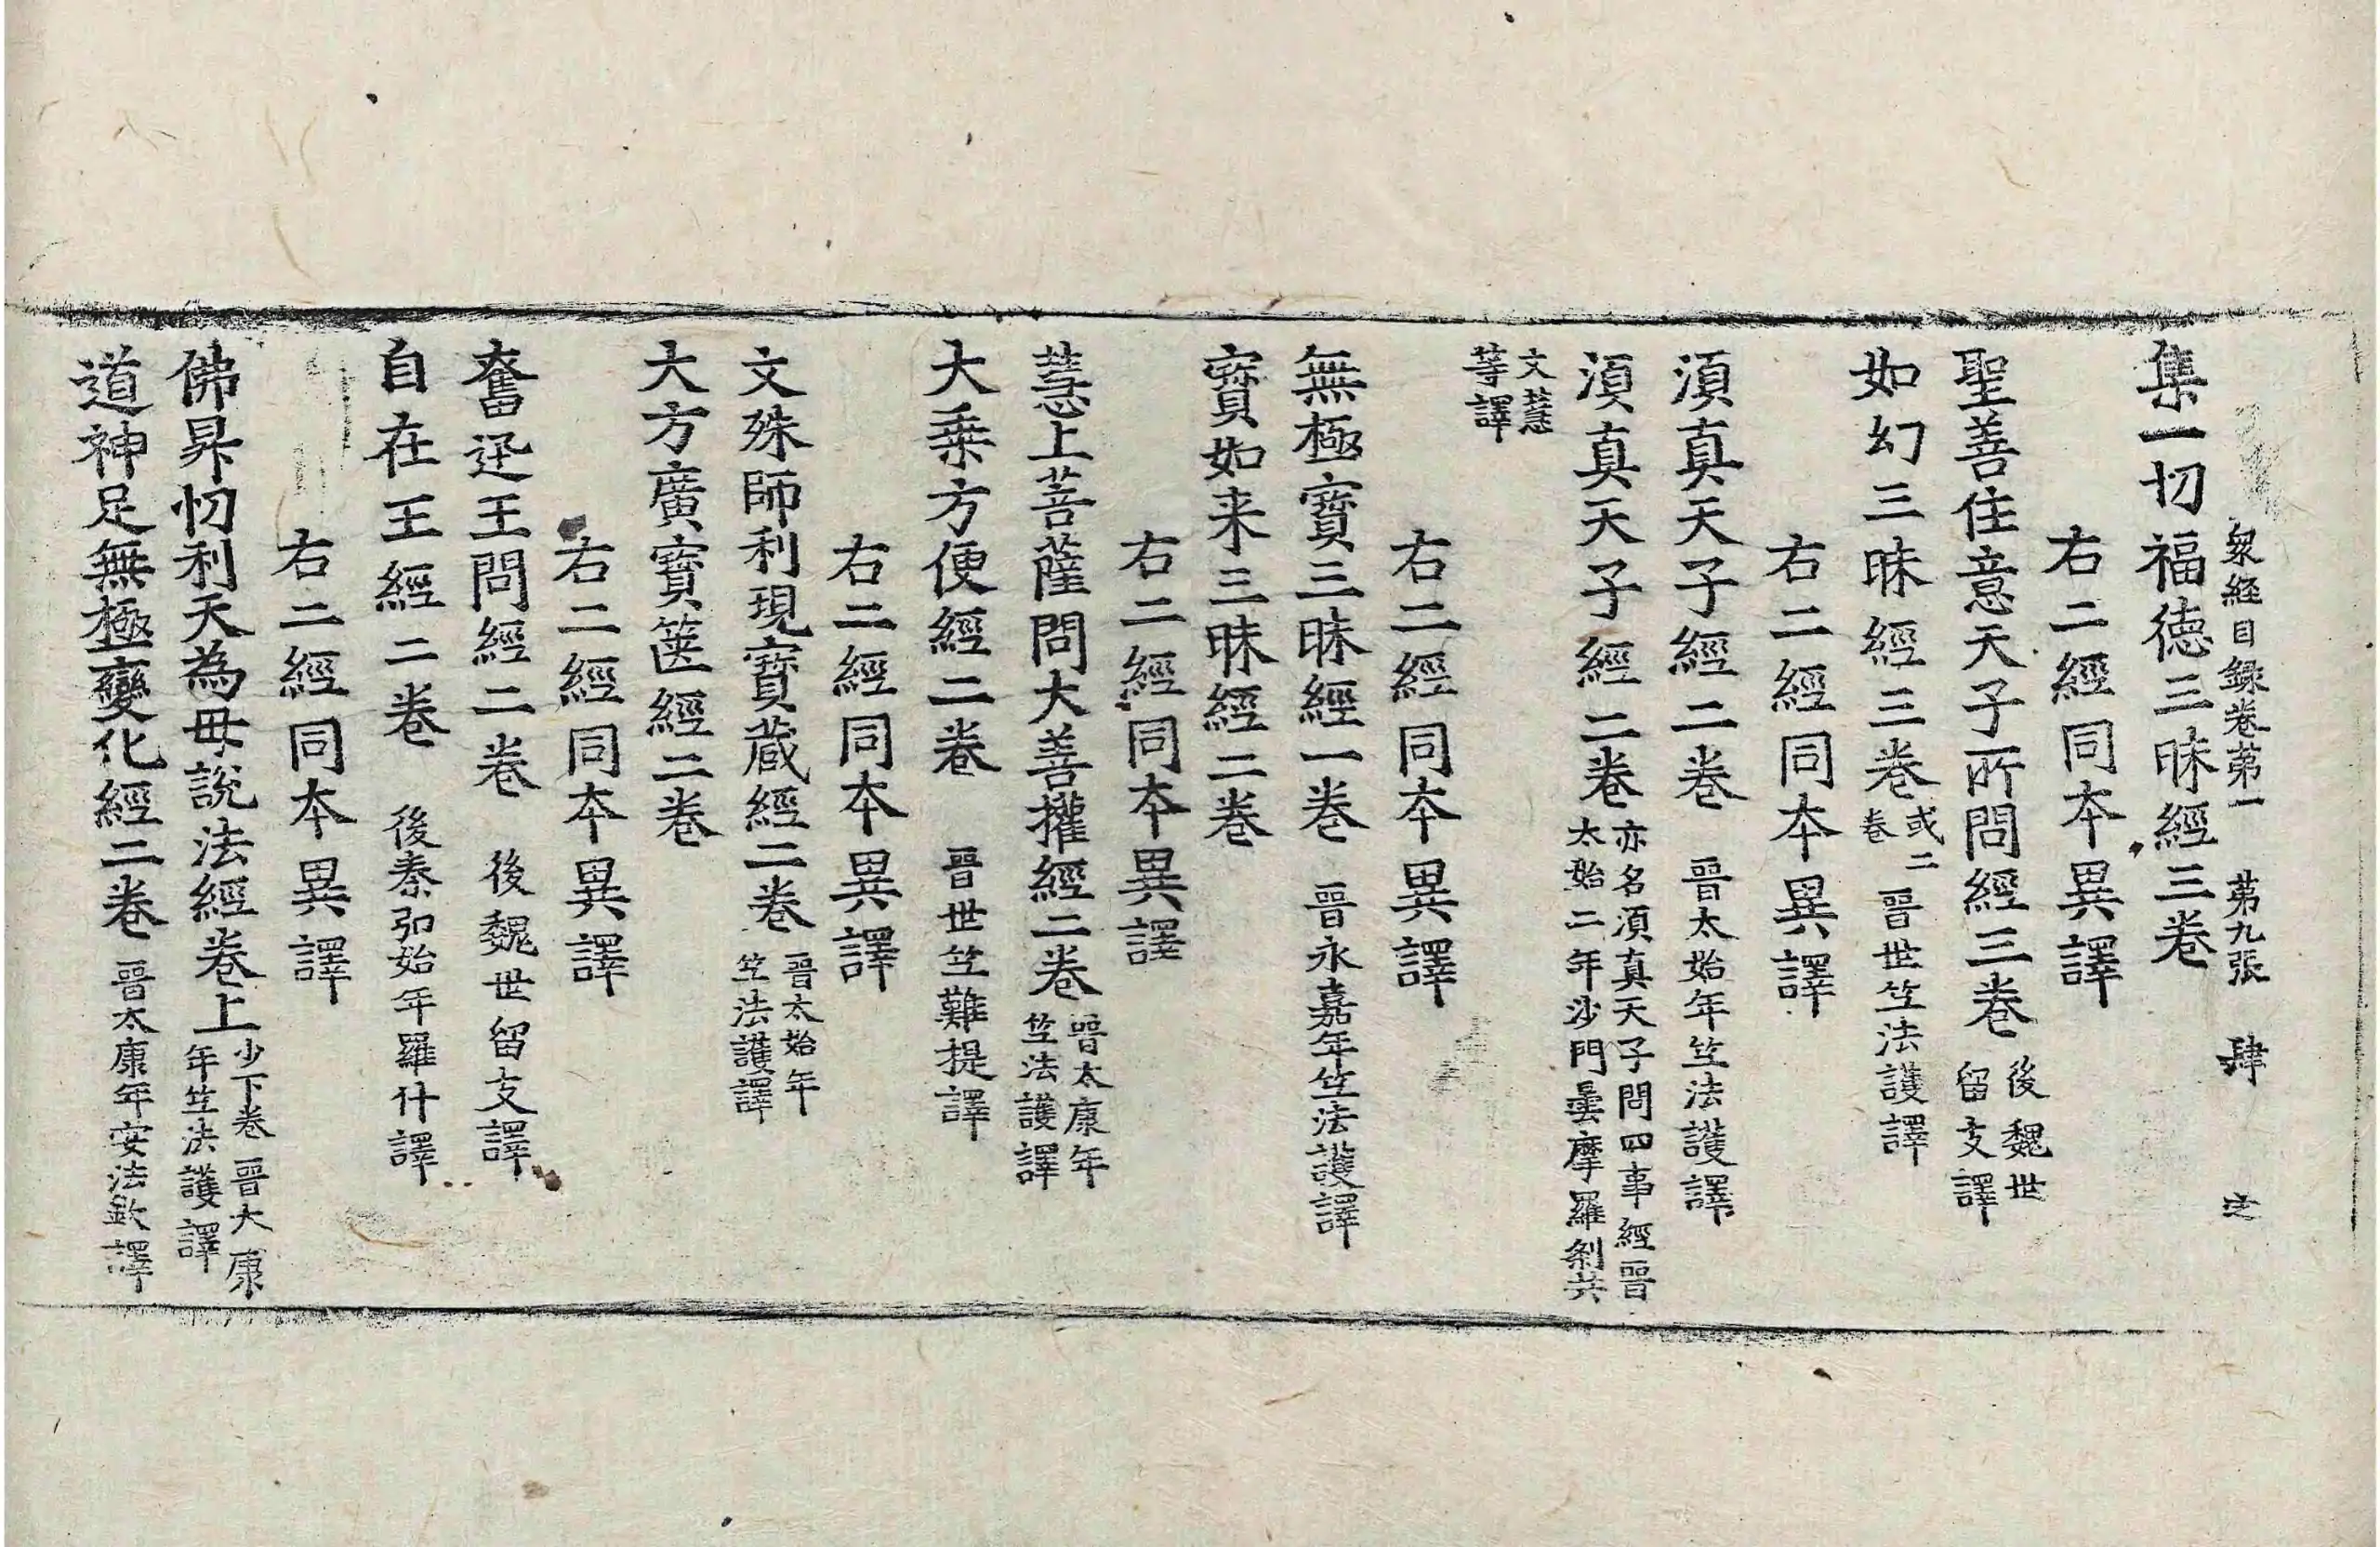 衆経目録卷苐一　苐九張　肆
集一切福德三昧經三卷
右二經同本異譯
聖善住意天子所問經三卷 後魏世
留支譯
如幻三昧經三卷 或二
卷 晉世竺法護譯
右二經同本異譯
湏真天子經二卷 晉太始年竺法護譯
湏真天子經二卷 亦名湏真天子問四事經晉
太始二年沙門曇摩羅剎共
文慧
等譯
右二經同本異譯
無極寳三昧經一卷 晉永嘉年竺法護譯
寳如来三昧經二卷
右二經同本異譯
慧上菩薩問大善權經二卷 晉太康年
竺法護譯
大乗方便經二卷 晉世竺難提譯
右二經同本異譯
文殊師利現寳蔵經二卷 晉太始年
竺法護譯
大方廣寳篋經二卷
右二經同本異譯
奮迅王問經二卷 後魏世留支譯
自在王經二卷 後秦弘始年羅什譯
右二經同本異譯
佛昇忉利天為母說法經卷上 少下卷 晉大康
年竺法護譯
道神足無極變化經二卷 晉太康年安法欽譯